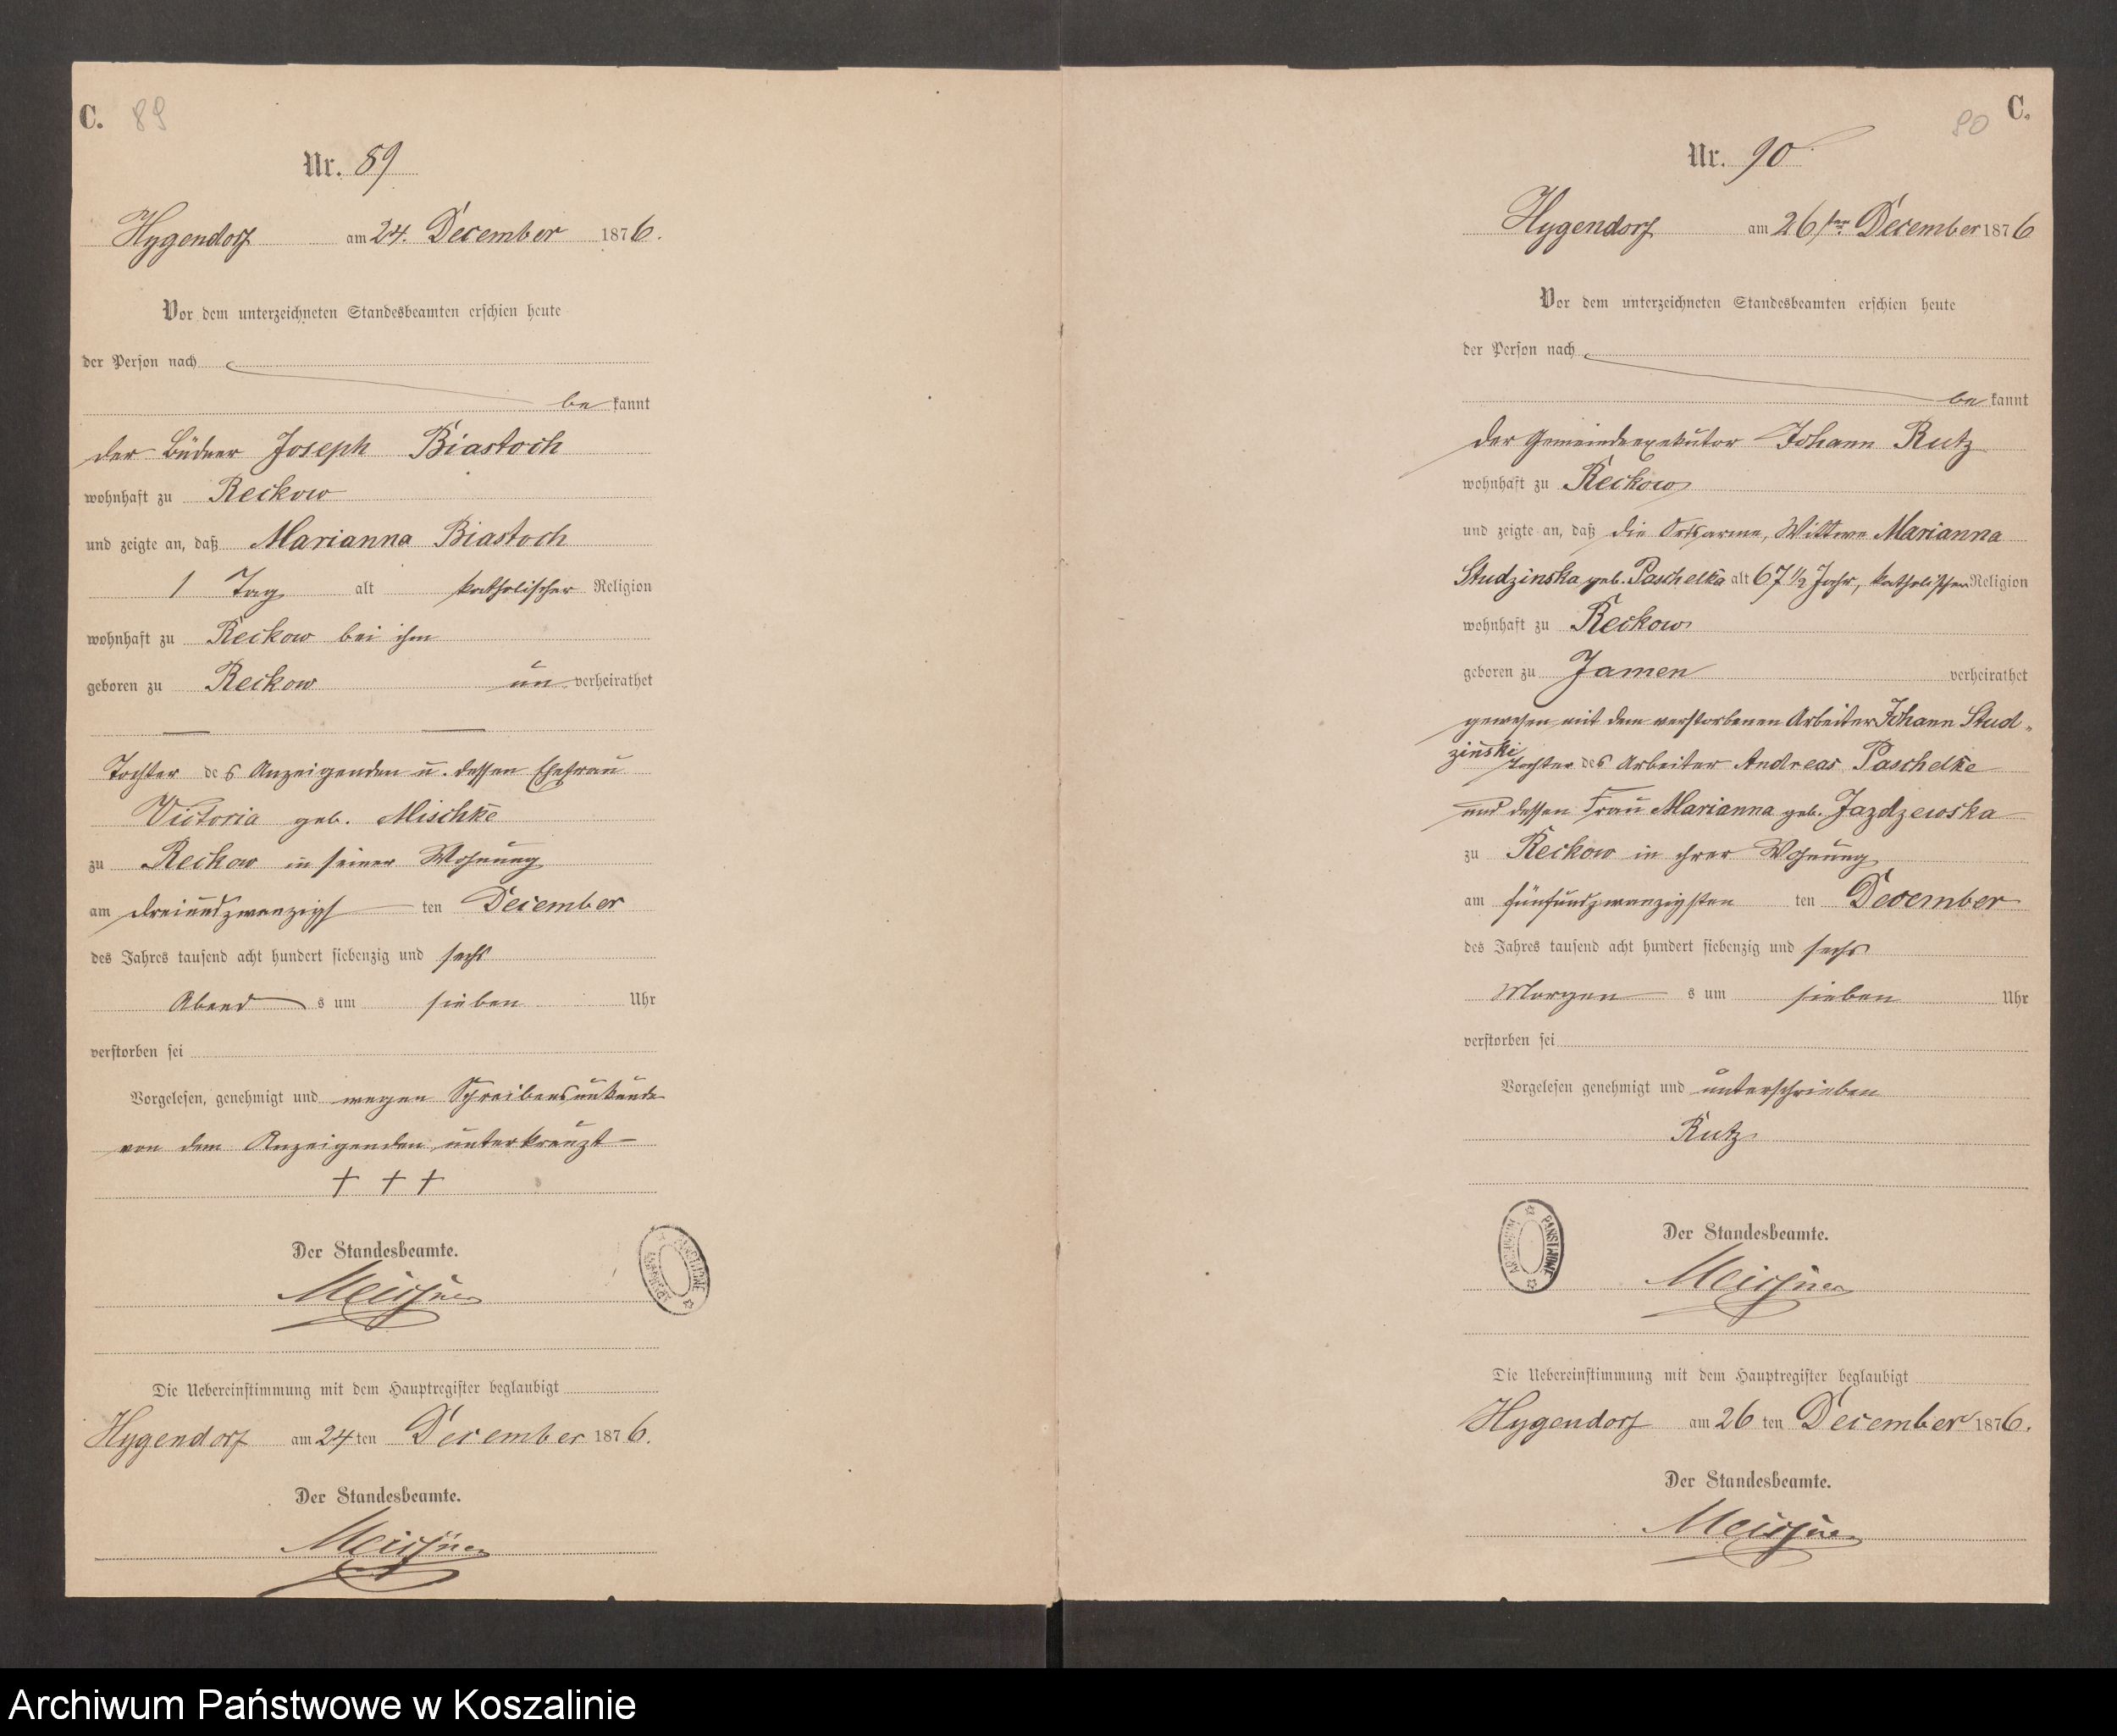 C. 89
Nr. 89
Hygendorf am 24. December 1876.
Vor dem unterzeichneten Standesbeamten erschien heute
der Person nach
be kannt
der Büdner Joseph Biastoch
wohnhaft zu Reckow
und zeigte an, daß Marianna Biastoch
1 Tag alt katholischer Religion
wohnhaft zu Reckow bei ihm
geboren zu Reckow un verheirathet
Tochter des Anzeigenden u. dessen Ehefrau
Victoria geb. Mischke
zu Reckow in seiner Wohnung
am dreiundzwanzigst ten December
des Jahres tausend acht hundert siebenzig und sechs
Abend s um sieben Uhr
verstorben sei
Vorgelesen, genehmigt und wegen Schreibensunkunde
von dem Anzeigenden unterkreuzt
+ + +
Der Standesbeamte.
Meissner
ARCHIWUM PAŃSTWOWE
Die Uebereinstimmung mit dem Hauptregister beglaubigt
Hygendorf am 24 ten December 1876.
Der Standesbeamte.
Meissner
90 C.
Nr. 90
Hygendorf am 26ten December 1876
Vor dem unterzeichneten Standesbeamten erschien heute
der Person nach
be kannt
der Gemeindeexekutor Johann Rutz
wohnhaft zu Reckow
und zeigte an, daß die Ortsarme, Wittwe Marianna
Studzinska geb. Paschelka alt 67 1/2 Jahr, katholischer Religion
wohnhaft zu Reckow
geboren zu Jamen verheirathet
gewesen mit dem verstorbenen Arbeiter Johann Stud-
zinski Tochter des Arbeiter Andreas Paschelke
und dessen Frau Marianna geb. Jazdzewska
zu Reckow in ihrer Wohnung
am fünfundzwanzigsten ten December
des Jahres tausend acht hundert siebenzig und sechs
Morgen s um sieben Uhr
verstorben sei
Vorgelesen genehmigt und unterschrieben
Rutz
Der Standesbeamte.
ARCHIWUM PAŃSTWOWE
Meissner
Die Uebereinstimmung mit dem Hauptregister beglaubigt
Hygendorf am 26 ten December 1876.
Der Standesbeamte.
Meissner
Archiwum Państwowe w Koszalinie